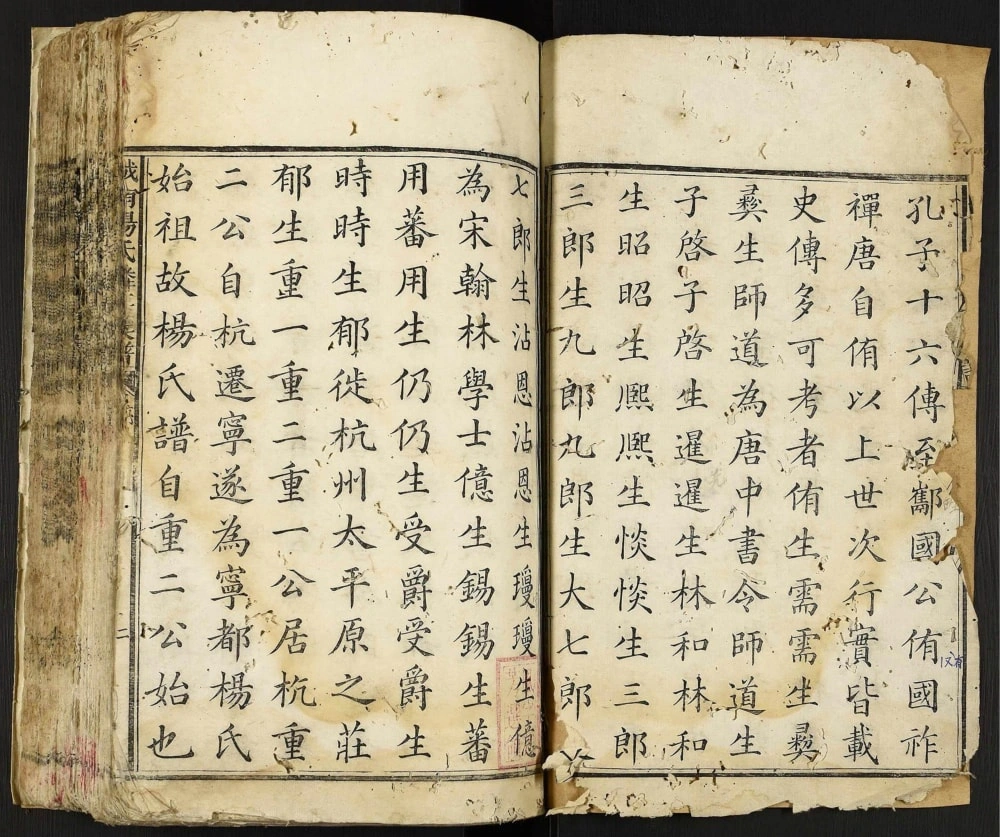 孔子十六傳至酅國公侑國祚
禪唐自侑以上世次行實皆載
史傳多可考者侑生需需生彞
彞生師道為唐中書令師道生
子啓子啓生暹暹生林和林和
生昭昭生熈熈生惔惔生三郎
三郎生九郎九郎生大七郎大
七郎生沾恩沾恩生瓊瓊生億
為宋翰林學士億生錫錫生蕃
用蕃用生仍仍生受爵受爵生
時時生郁徙杭州太平原之莊
郁生重一重二重一公居杭重
二公自杭遷寧遂為寧都楊氏
始祖故楊氏譜自重二公始也
城南楊氏 族譜
二